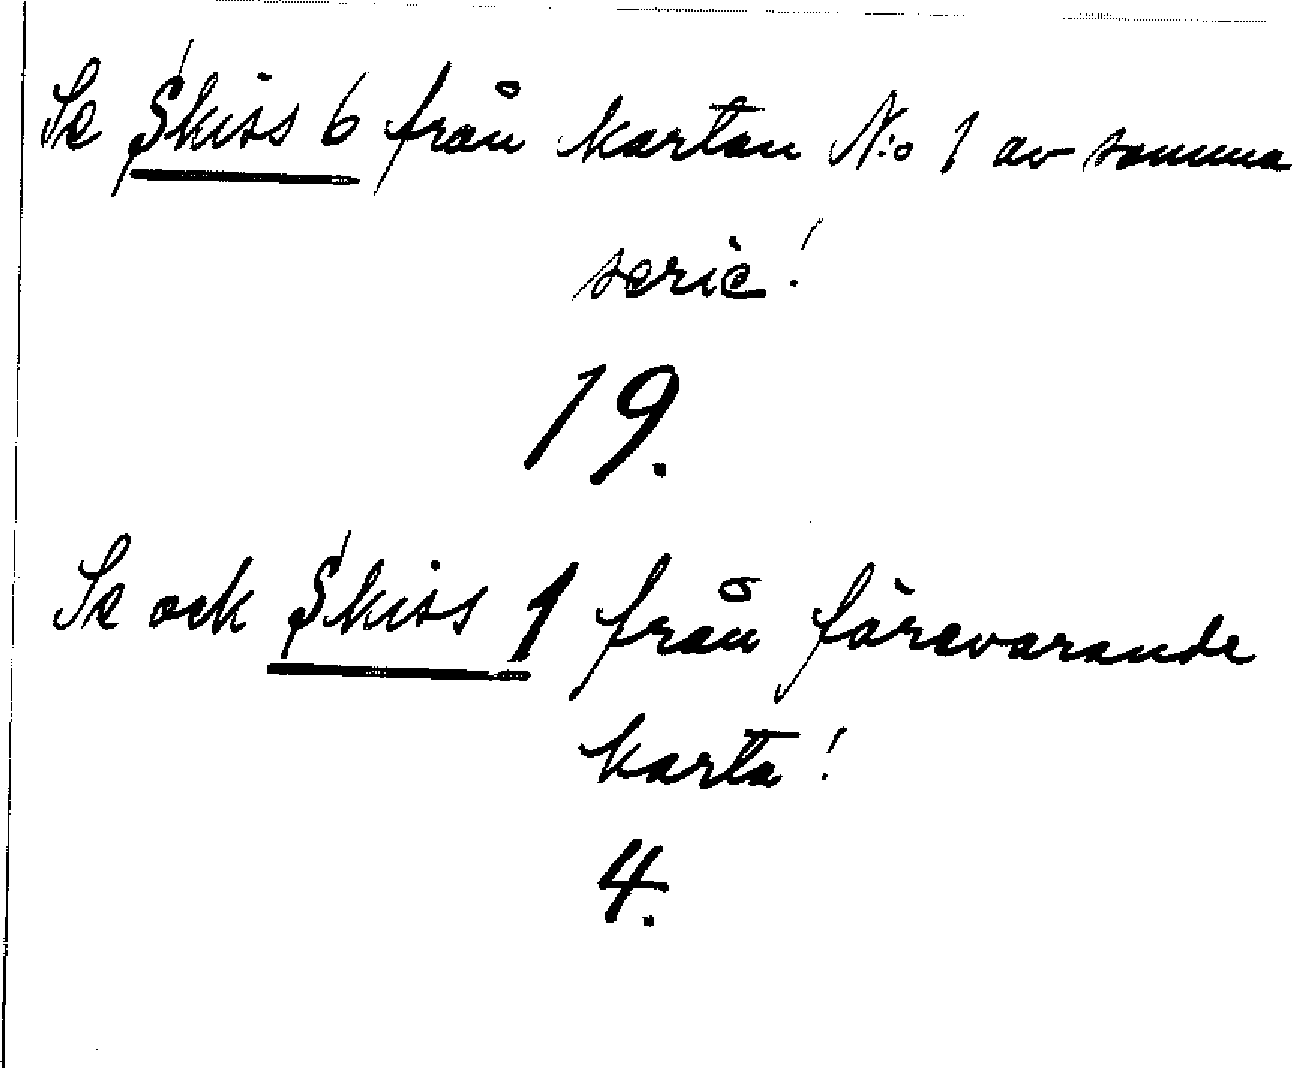 Se Skiss 6 från kartan N:o 1 av samma
serie!
19.
Se ock Skiss 1 från förevarande
karta!
4.